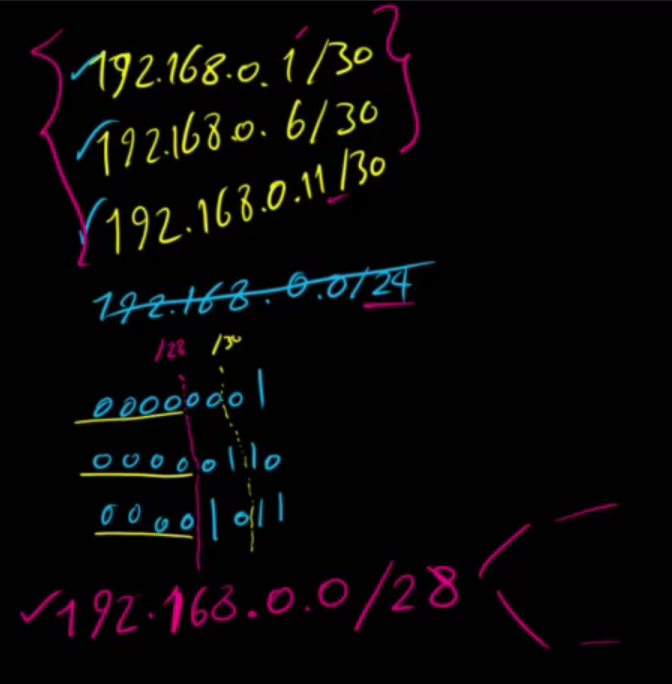 192.168.0.1/30
192.168.0.6/30
192.168.0.11/30
192.168.0.0/24
/28 /30
00000001
00000110
00001011
192.168.0.0/28